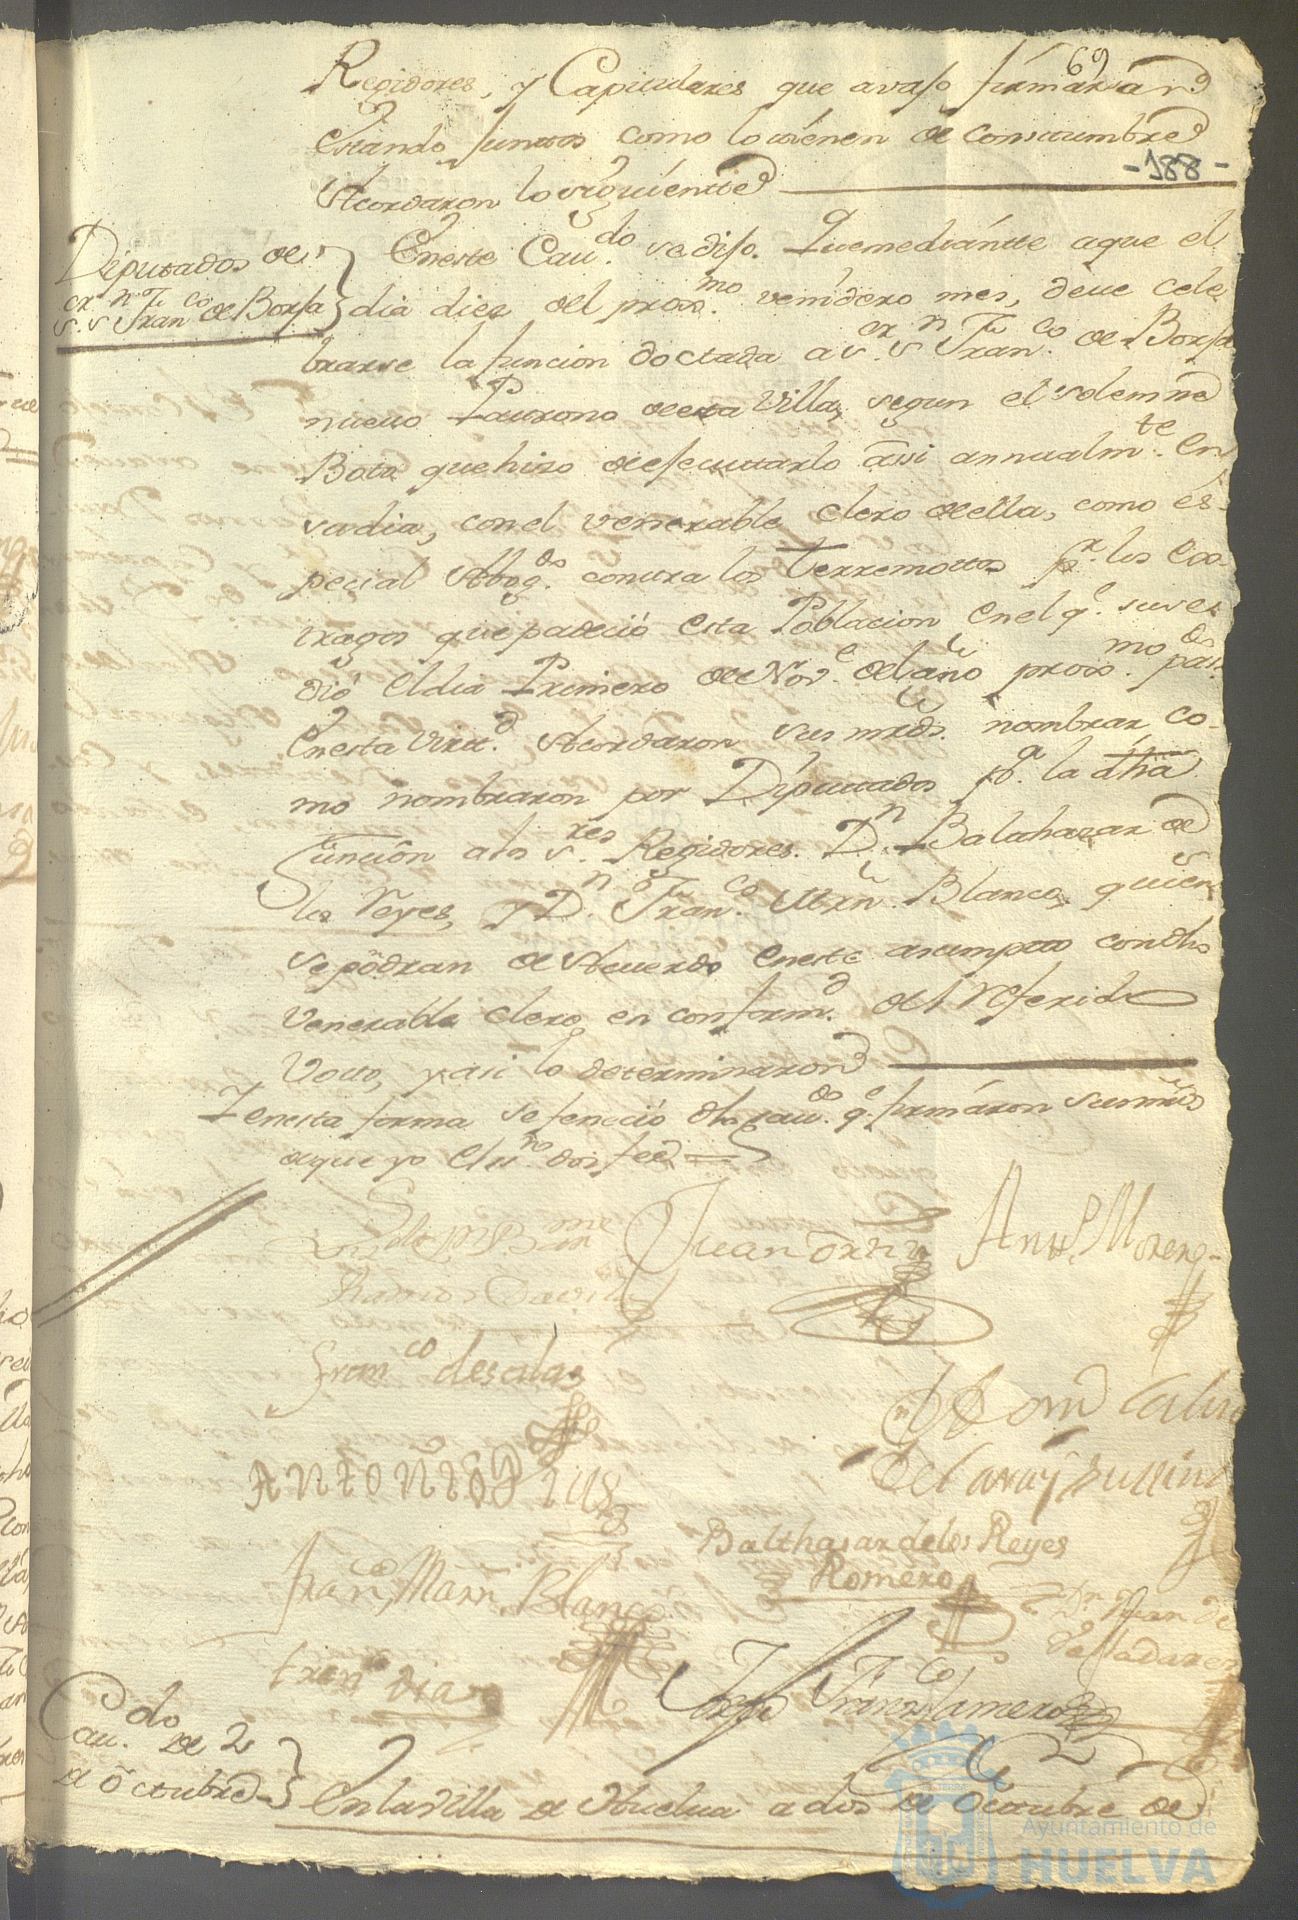 69
Regidores, y Capitulares que avaxo firmaràn
estando Juntos como lo tienen de Constumbre
-188-
Acordaron lo sigùiente
Diputados de
Sr. Sn Franco de Borja
En este Caudo. se dijo. Que mediántte aque el
dia diez del proxmo. venidero mes, deve cele
brarse la funcion doctada a Sr. Sn Franco. de Borja
nuevo Pattrono de esta Villa, segun el solemne
Boto que hizo de ejecuttarlo assi annualmte. En
su dia, con el venerable Clero de ella, como es-
pecial Abogdo. contra los Terremottos pr. los Ex-
tragos que padeció esta Poblacion en el qe. suce-
dió el dia Primero de Nove. del año proxmo. pasdo.
En esta virtd. Acordaron sus mrds. nombrar, co-
mo nombraron por Diputtados pa. la dha
Función a los Sres. Regidores. Dn. Balthazar de
los Reyes, y Dn. Franco. Mrn. Blanco, quien
se pòdran de Acuerdo en este asumptto con dho
Venerable Clero en conformd. del Referido
Votto, y asi lo determinaron
Y en esta forma se feneció dho caudo. qe. firmáron sus mrds
de que yo el sno. doi fee
Juan
Antto Moreno
Franco de salas
Antonio
Balthasar de los Reyes
Romero
Franco Marn Blanco
Dn Juan de
Franco Diaz
Caudo. de 2
de òctubre
En la Villa de Huelva a dos de Octubre de
Ayuntamiento de
HUELVA